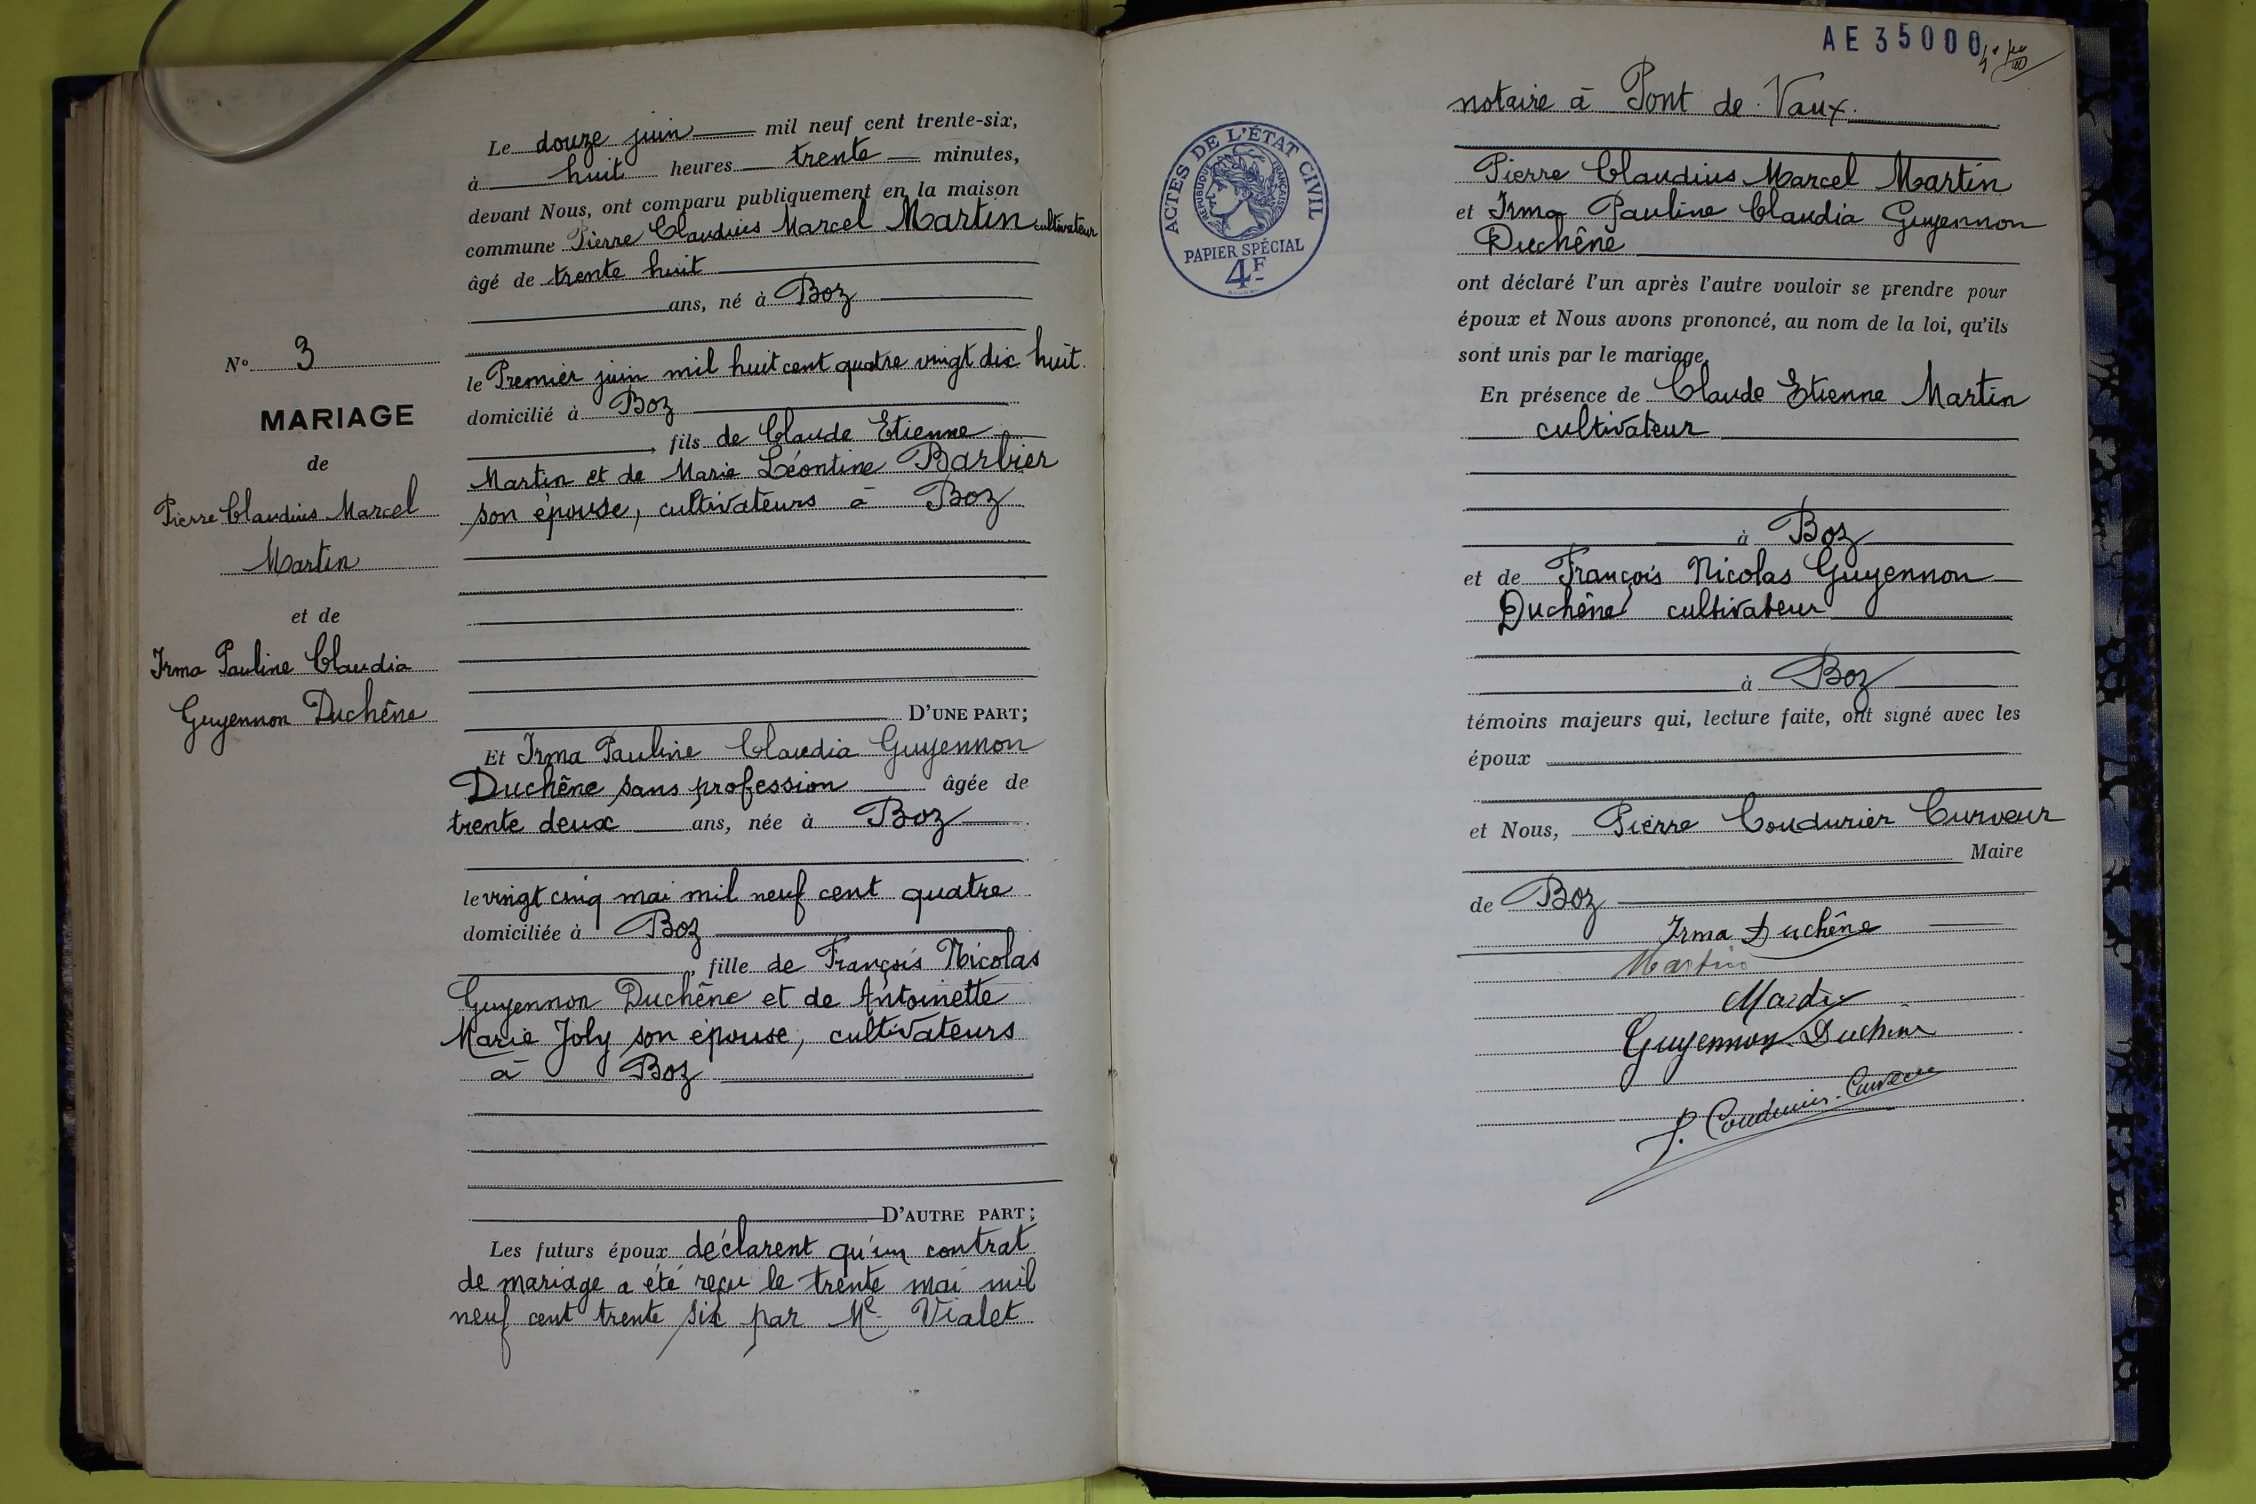 Le douze juin mil neuf cent trente-six,
à huit heures trente minutes,
devant Nous, ont comparu publiquement en la maison
commune Pierre Claudius Marcel Martin cultivateur
âgé de trente huit
ans, né à Boz
le Premier juin mil huit cent quatre vingt dix huit.
domicilié à Boz
, fils de Claude Etienne
Martin et de Marie Léontine Barbier
son épouse, cultivateurs à Boz
D'UNE PART;
Et Irma Pauline Claudia Guyennon
Duchêne sans profession âgée de
trente deux ans, née à Boz
le vingt cinq mai mil neuf cent quatre
domiciliée à Boz
, fille de François Nicolas
Guyennon Duchêne et de Antoinette
Marie Joly son épouse, cultivateurs
à Boz
D'AUTRE PART;
Les futurs époux déclarent qu'un contrat
de mariage a été reçu le trente mai mil
neuf cent trente six par Me Vialet
No 3
MARIAGE
de
Pierre Claudius Marcel
Martin
et de
Irma Pauline Claudia
Guyennon Duchêne
AE35000
ACTES DE L'ÉTAT CIVIL
RÉPUBLIQUE FRANÇAISE
PAPIER SPÉCIAL
4F
notaire à Pont de Vaux.
Pierre Claudius Marcel Martin
et Irma Pauline Claudia Guyennon
Duchêne
ont déclaré l'un après l'autre vouloir se prendre pour
époux et Nous avons prononcé, au nom de la loi, qu'ils
sont unis par le mariage,
En présence de Claude Etienne Martin
cultivateur
à Boz
et de François Nicolas Guyennon
Duchêne cultivateur
à Boz
témoins majeurs qui, lecture faite, ont signé avec les
époux
et Nous, Pierre Coudurier Curveur
Maire
de Boz
Irma Duchêne
Martin
Martin
Guyennon Duchene
P. Coudurier-Curveur